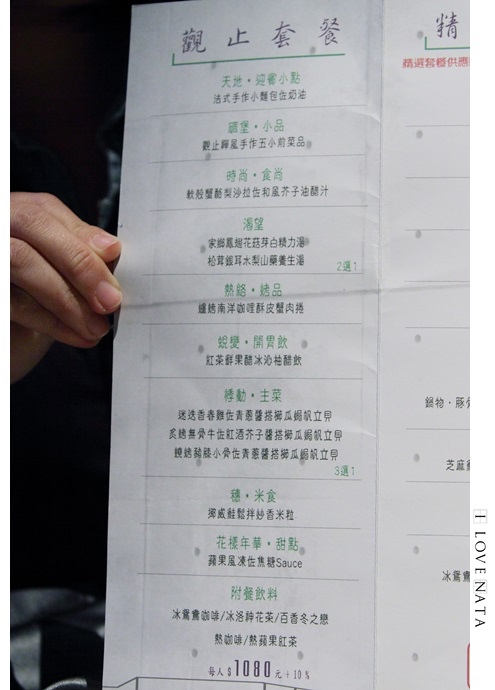 觀止套餐
天地・迎賓小點
法式手作小麵包佐奶油
頤堡・小品
觀止輝風手作五小前菜品
時尚・食尚
軟殼蟹酪梨沙拉佐和風芥子油醋汁
渴望
家鄉鳳翅花菇芽白精力湯
松茸銀耳水梨山藥養生湯
2選1
熱銘・烤品
爐烤南洋咖哩酥皮蟹肉捲
蛻變・開胃飲
紅茶鮮果醋冰沁柚醋飲
悸動・主菜
迷迭香春雞佐青蔥醬搭櫛瓜焗帆立貝
炙烤無骨牛佐紅酒芥子醬搭櫛瓜焗帆立貝
燒烤豬膝小骨佐青蔥醬搭櫛瓜焗帆立貝
3選1
穗・米食
挪威鮭鬆拌炒香米粒
花樣年華・甜點
蘋果風凍佐焦糖Sauce
附餐飲料
冰鴛鴦咖啡/冰洛神花茶/百香冬之戀
熱咖啡/熱蘋果紅茶
每人$1080元+10%
精
精選套餐供應
鍋物・豚
芝麻
冰鴛鴦
I LOVE NATA